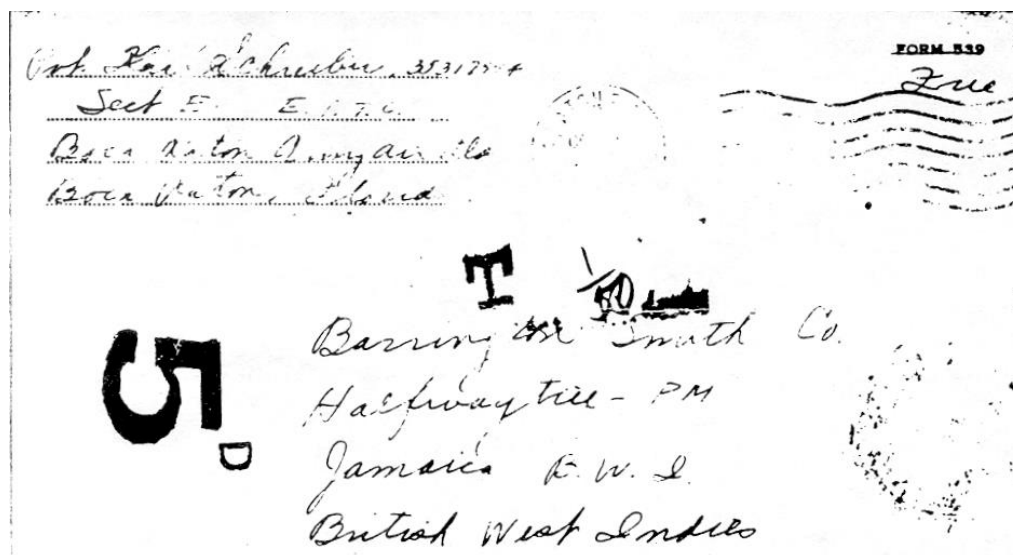 Pvt. Schreiber, 3531
Sect E. E.
Boca Raton Army Air
Boca Raton, Florida
FORM 539
Free
T
1/
5D
Barrington Smith Co.
Halfwaytree - PM
Jamaica B.W.I.
British West Indies